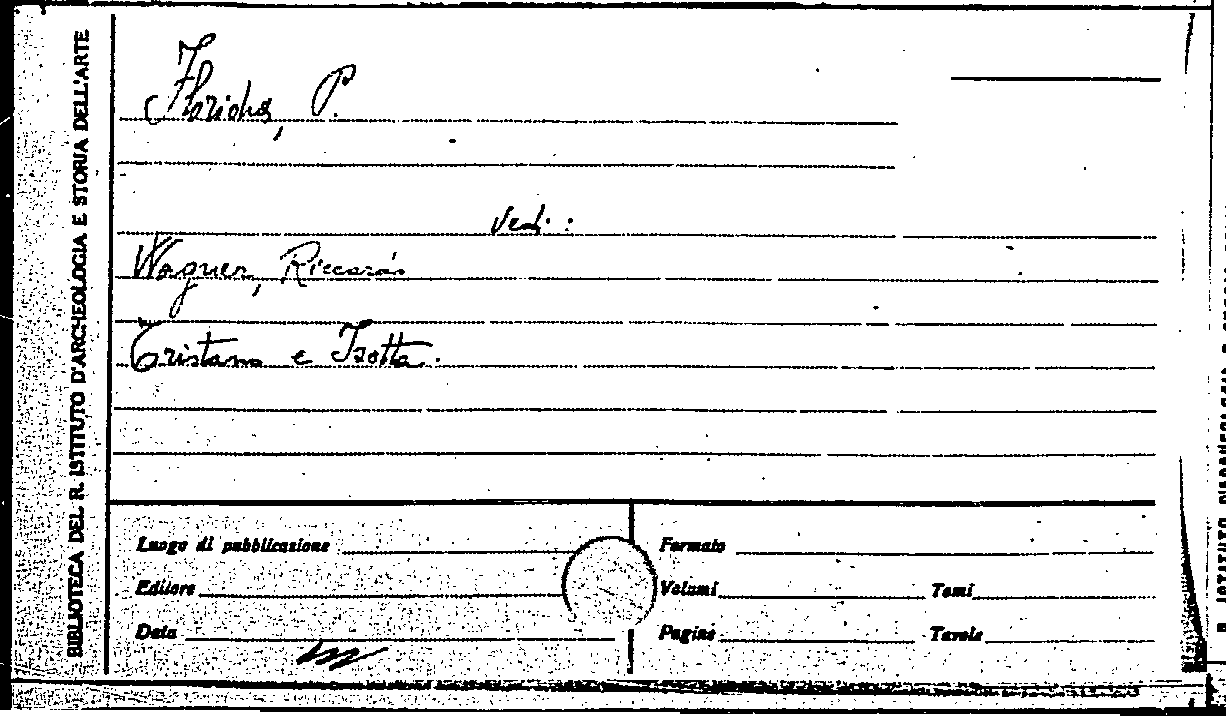 BIBLIOTECA DEL R. ISTITUTO D'ARCHEOLOGIA E STORIA DELL'ARTE
P.
Vedi :
Wagner, Riccardo
Tristano e Isotta.
Luogo di pubblicazione
Editore
Data
Formato
Volumi Tomi
Pagine Tavole